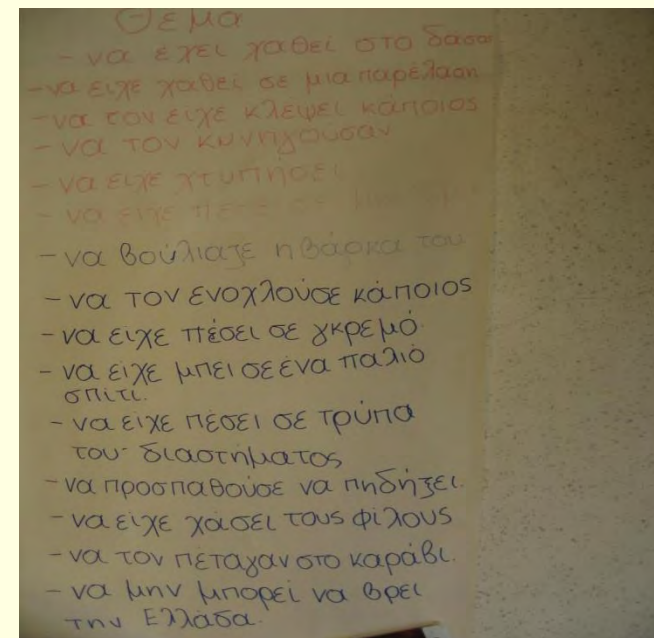 Θέμα
- να έχει χαθεί στο δάσος
- να είχε χαθεί σε μια παρέλαση
- να τον είχε κλέψει κάποιος
- να τον κυνηγούσαν
- να είχε χτυπήσει
- να είχε πέσε σε
- να βούλιαζε η βάρκα του
- να τον ενοχλούσε κάποιος
- να είχε πέσει σε γκρεμό.
- να είχε μπει σε ένα παλιό
σπίτι.
- να είχε πέσει σε τρύπα
του διαστήματος
- να προσπαθούσε να πηδήξει.
- να είχε χάσει τους φίλους
- να τον πέταγαν στο καράβι.
- να μην μπορεί να βρει
την Ελλάδα.